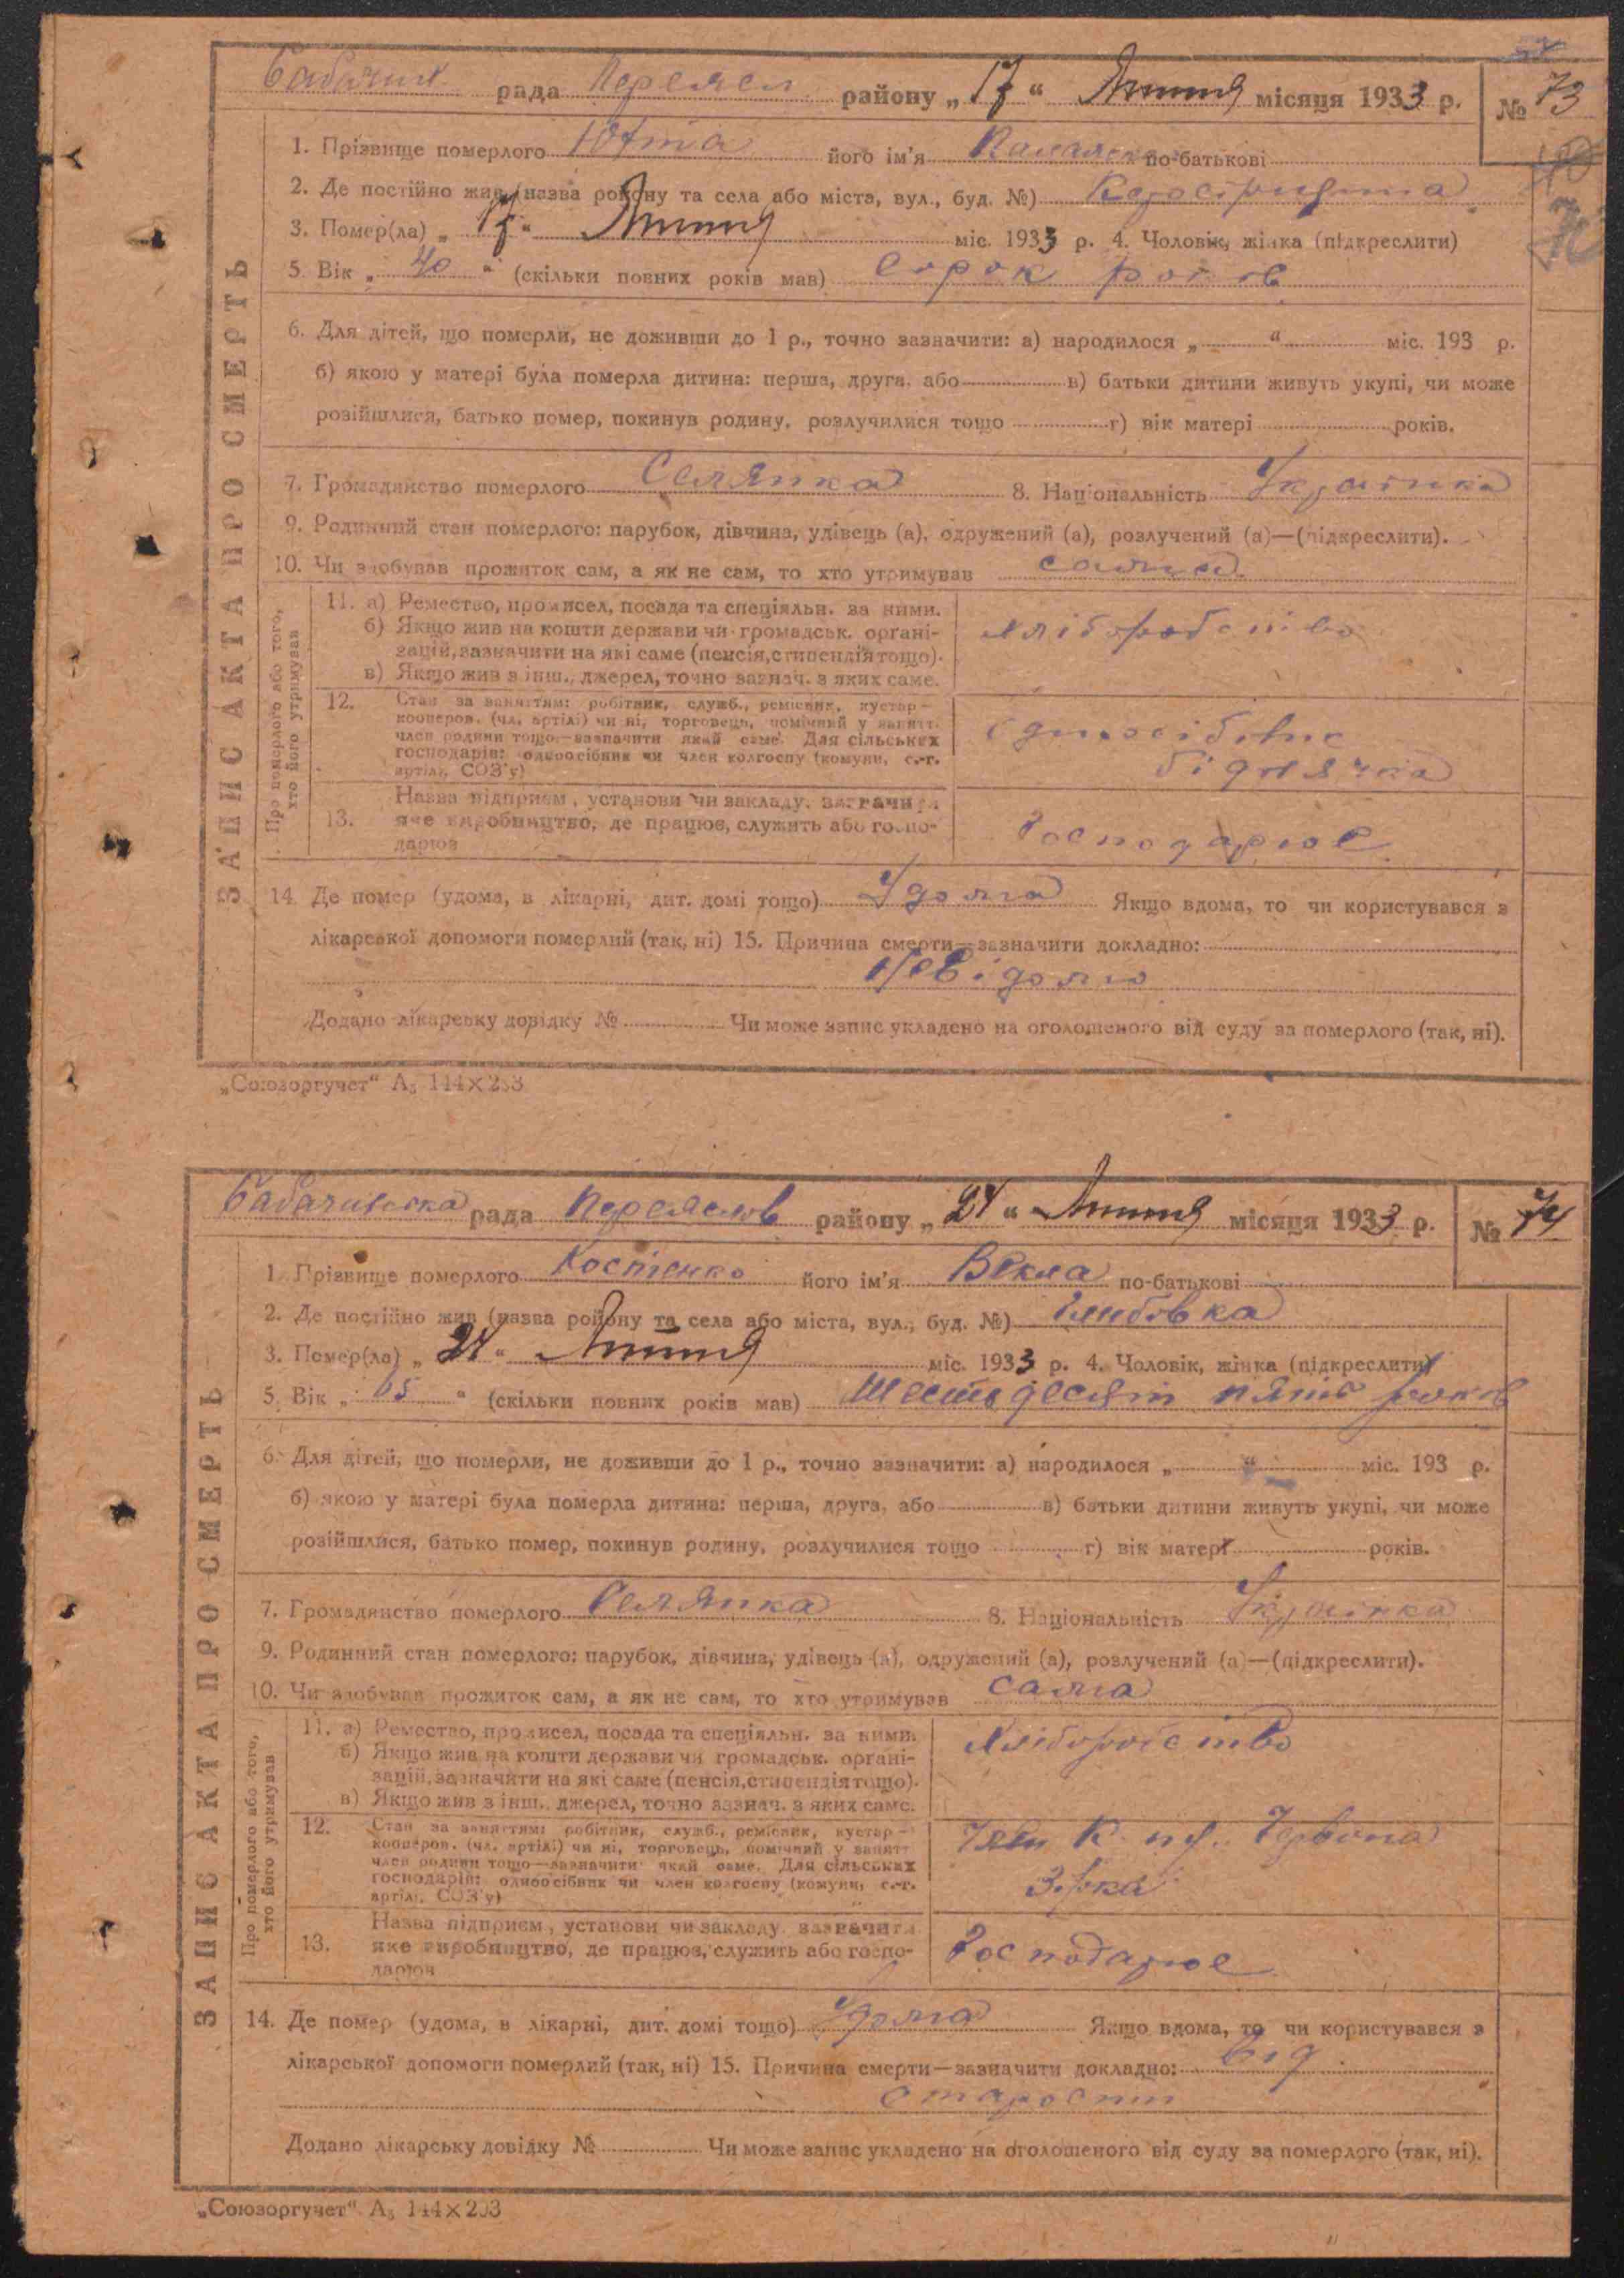 рада район „17“ Липня місяця 1933 р. № 73
1. Прізвище померлого Юхта його ім'я по-батькові
2. Де постійно жив (назва району та села або міста, вул., буд. №)
3. Помер(ла) „17“ Липня міс. 1933 р. 4. Чоловік, жінка (підкреслити)
5. Вік „40“ (скільки повних років мав) Сорок років
6. Для дітей, що померли, не доживши до 1 р., точно зазначити: а) народилося „ “ міс. 193 р.
б) якою у матері була померла дитина: перша, друга, або в) батьки дитини живуть укупі, чи може
розійшлися, батько помер, покинув родину, розлучилися тощо г) вік матері років.
7. Громадянство померлого Селянка 8. Національність Українка
9. Родинний стан померлого: парубок, дівчина, удівець (а), одружений (а), розлучений (а)—(підкреслити).
10. Чи здобував прожиток сам, а як не сам, то хто утримував сама
ЗАПИС АКТА ПРО СМЕРТЬ
Про померлого або того, хто його утримував
11. а) Ремество, промисел, посада та спеціяльн. за ними.
б) Якщо жив на кошти держави чи громадськ. органі-
зацій, зазначити на які саме (пенсія, стипендія тощо).
в) Якщо жив з інш., джерел, точно зазнач. з яких саме.
хліборобство
12. Стан за заняттям: робітник, служб., ремісник, кустар—
кооперов. (чл. артілі) чи ні, торговець, помічний у занятт.
член родини тощо—зазначити який саме. Для сільських
господарів: одноосібник чи член колгоспу (комуни, с.-г.
артілі, СОЗ'у)
бідячка
13. Назва підприєм., установи чи закладу, зазначити
яке виробництво, де працює, служить або госпо-
дарює
Господарює
14. Де помер (удома, в лікарні, дит. домі тощо) Удома Якщо вдома, то чи користувався з
лікарської допомоги померлий (так, ні) 15. Причина смерти—зазначити докладно:
Невідомо
Додано лікарську довідку № Чи може запис укладено на оголошеного від суду за померлого (так, ні).
„Союзоргучет“ А₅ 144×203
Бабачивська рада Переяслов району „24“ Липня місяця 1933 р. № 74
1. Прізвище померлого Костенко його ім'я Векла по-батькові
2. Де постійно жив (назва району та села або міста, вул., буд. №)
3. Помер(ла) „24“ Липня міс. 1933 р. 4. Чоловік, жінка (підкреслити)
5. Вік „65“ (скільки повних років мав) Шестьдесят пять років
6. Для дітей, що померли, не доживши до 1 р., точно зазначити: а) народилося „ “ міс. 193 р.
б) якою у матері була померла дитина: перша, друга, або в) батьки дитини живуть укупі, чи може
розійшлися, батько помер, покинув родину, розлучилися тощо г) вік матері років.
7. Громадянство померлого Селянка 8. Національність Українка
9. Родинний стан померлого: парубок, дівчина, удівець (а), одружений (а), розлучений (а)—(підкреслити).
10. Чи здобував прожиток сам, а як не сам, то хто утримував сама
ЗАПИС АКТА ПРО СМЕРТЬ
Про померлого або того, хто його утримував
11. а) Ремество, промисел, посада та спеціяльн. за ними.
б) Якщо жив на кошти держави чи громадськ. органі-
зацій, зазначити на які саме (пенсія, стипендія тощо).
в) Якщо жив з інш., джерел, точно зазнач. з яких саме.
Хліборобство
12. Стан за заняттям: робітник, служб., ремісник, кустар—
кооперов. (чл. артілі) чи ні, торговець, помічний у занятт.
член родини тощо—зазначити який саме. Для сільських
господарів: одноосібник чи член колгоспу (комуни, с.-г.
артілі, СОЗ'у)
Член Червона
Зірка
13. Назва підприєм., установи чи закладу, зазначити
яке виробництво, де працює, служить або госпо-
дарює
Господарює
14. Де помер (удома, в лікарні, дит. домі тощо) Удома Якщо вдома, то чи користувався з
лікарської допомоги померлий (так, ні) 15. Причина смерти—зазначити докладно: від
старости
Додано лікарську довідку № Чи може запис укладено на оголошеного від суду за померлого (так, ні).
„Союзоргучет“ А₅ 144×203